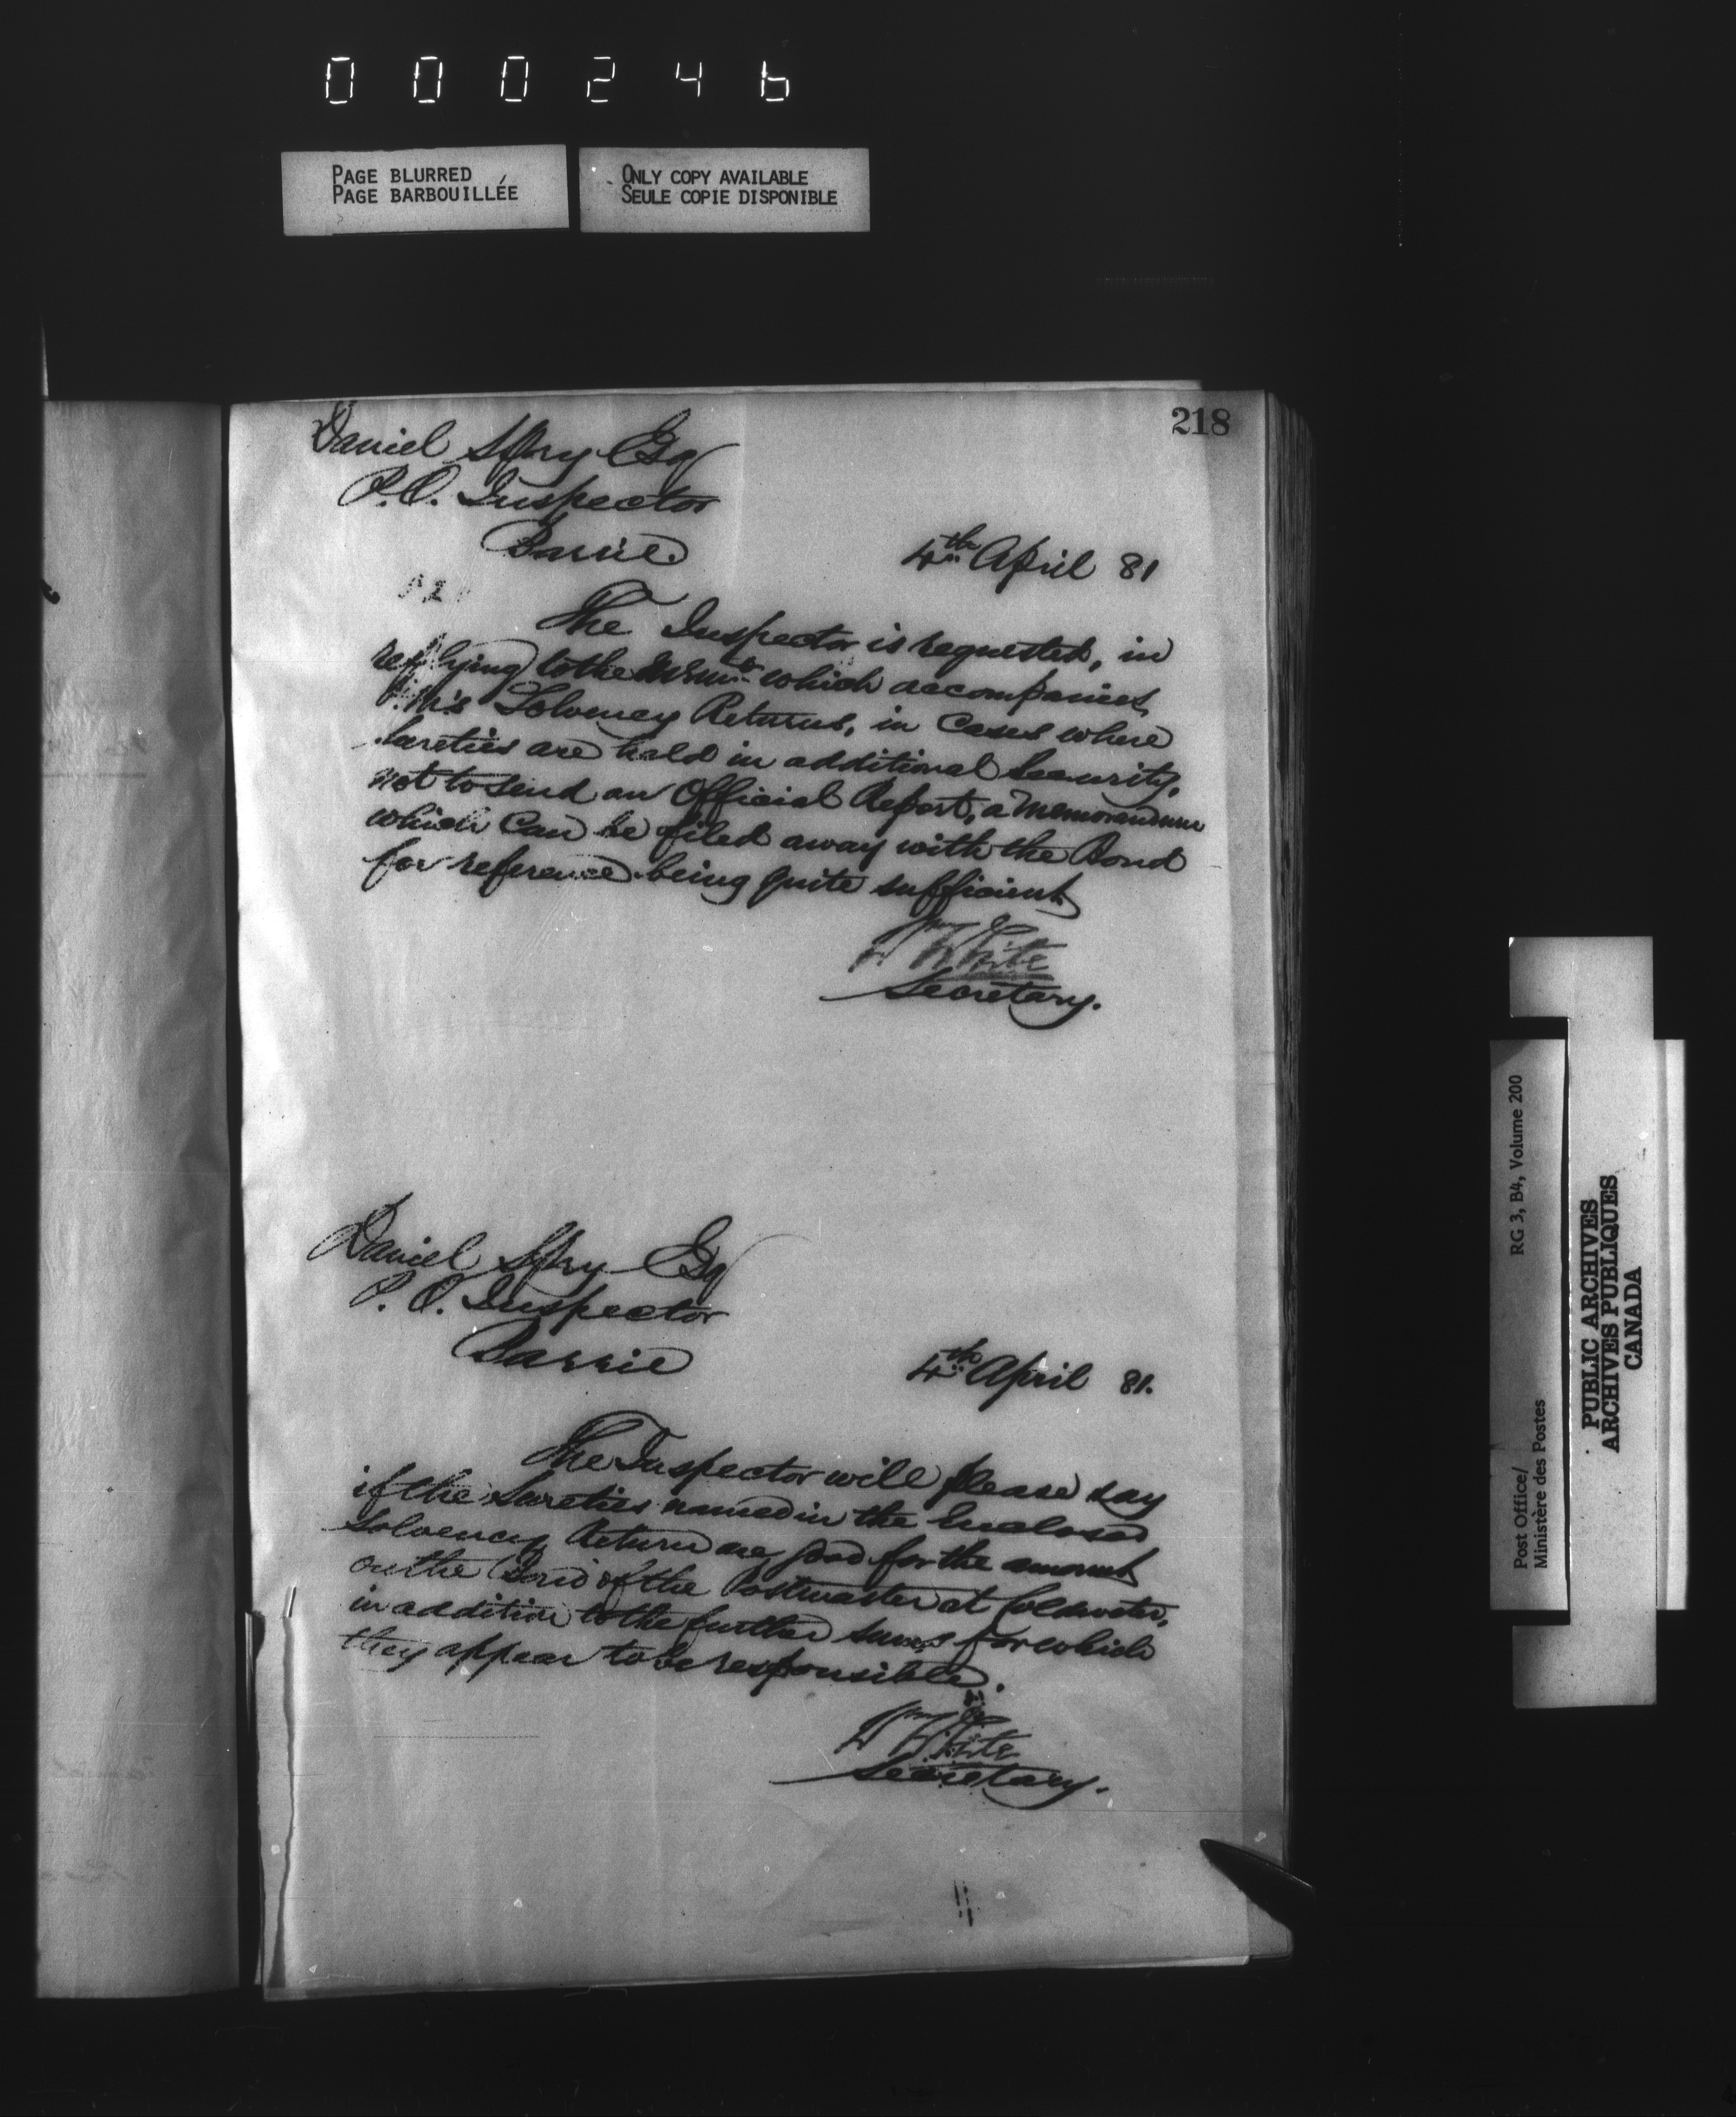 000246
PAGE BLURRED
PAGE BARBOUILLÉE
ONLY COPY AVAILABLE
SEULE COPIE DISPONIBLE
218
Daniel Spry Esq
P.O. Inspector
Barrie
4th April 81
The Inspector is requested, in
replying to the Memo which accompanies
P.M's Solvency Returns, in Cases where
Sureties are held in additional Security,
not to send an Official Report, a Memorandum
which Can be filed away with the Bond
for reference being quite sufficient
Wm White
Secretary.
Daniel Spry Esq
P.O. Inspector
Barrie
4th April 81.
The Inspector will please say
if the Sureties named in the Enclosed
Solvency Return are good for the amount
on the Bond of the Postmaster at Coldwater,
in addition to the further sums for which
they appear to be responsible.
Wm White
Secretary.
Post Office/
Ministère des Postes
RG 3, B4, Volume 200
PUBLIC ARCHIVES
ARCHIVES PUBLIQUES
CANADA